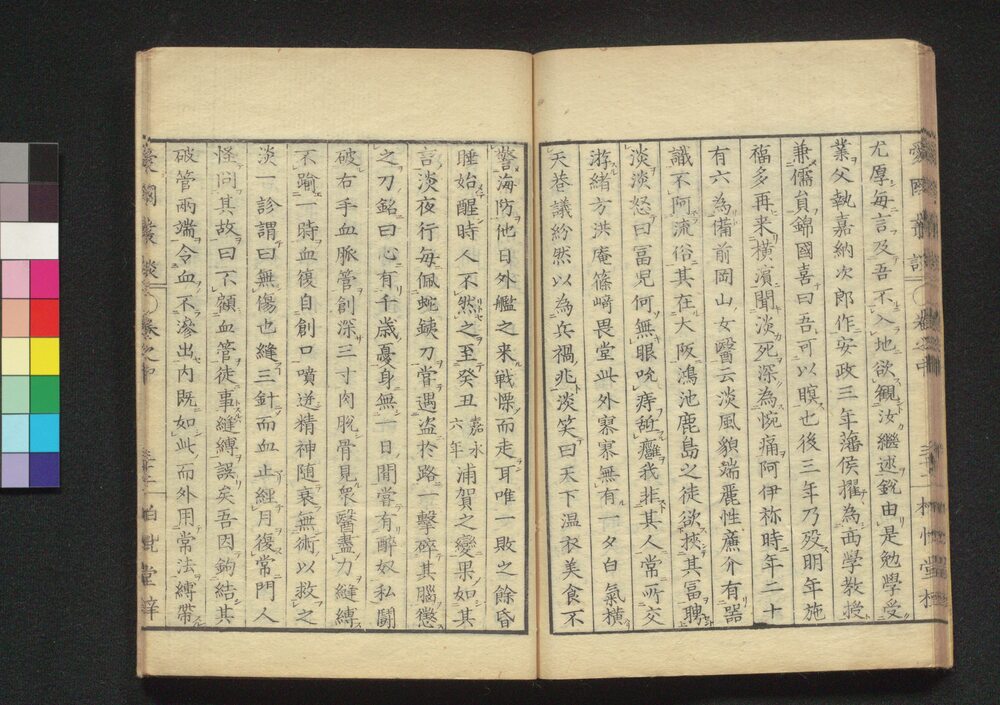 尤厚每言及吾不入地欲觀汝繼述銳由是勉學受
業父執嘉納次郎作安政三年藩侯擢為西學教授
兼儒員錦國喜曰吾可以瞑也後三年乃歿明年施
福多再来橫濱聞淡死深為惋痛阿伊祢時年二十
有六為備前岡山女醫云淡風貌端麗性廉介有器
識不阿流俗其在大阪鴻池鹿島之徒欲挾其冨聘
淡淡怒曰冨兒何無眼吮痔舐癰我非其人常所交
游緒方洪庵篠﨑畏堂此外寥寥無有一夕白氣橫
天巷議紛然以為兵禍兆淡笑曰天下温衣美食不
警海防他日外艦之来戦慄而走耳唯一敗之餘昏
睡始醒時人不然之至癸丑嘉永六年浦賀之變果如其
言淡夜行每佩蛇鋏刀嘗遇盗於路一擊碎其腦懲
之刀銘曰心有千歳憂身無一日閒嘗有醉奴私鬪
破右手血脈管創深三寸肉脫骨見衆醫盡力縫縛
不踰一時血復自創口噴迸精神随衰無術以救之
淡一診謂曰無傷也縫三針而血止經月復常門人
怪問其故曰不顧血管徒事縫縛誤矣吾因鉤結其
破管兩端令血不滲出内既如此而外用常法縛帶